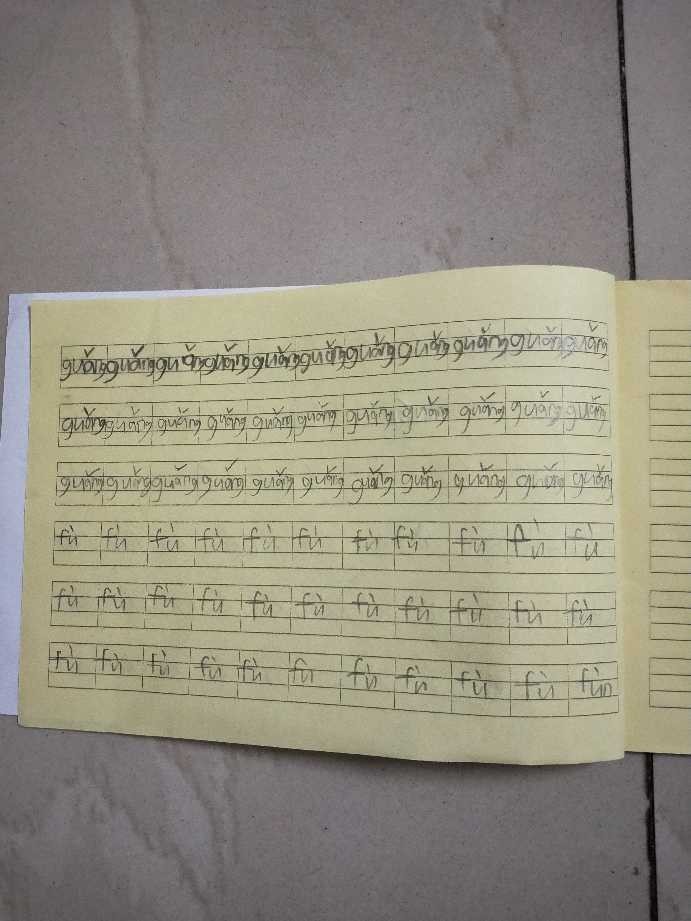 guǎng guǎng guǎng guǎng guǎng guǎng guǎng guǎng guǎng guǎng guǎng
guǎng guǎng guǎng guǎng guǎng guǎng guǎng guǎng guǎng guǎng guǎng
guǎng guǎng guǎng guǎng guǎng guǎng guǎng guǎng guǎng guǎng guǎng
fù fù fù fù fù fù fù fù fù fù fù
fù fù fù fù fù fù fù fù fù fù fù
fù fù fù fù fù fù fù fù fù fù